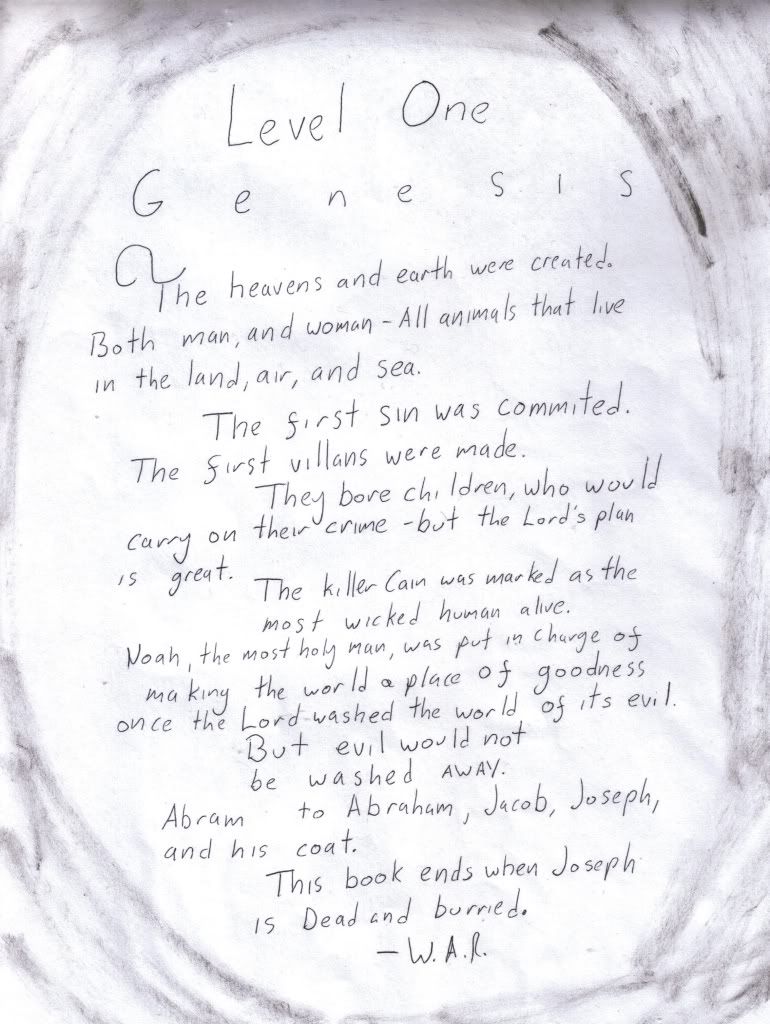 Level One
Genesis
The heavens and earth were created.
Both man, and woman - All animals that live
in the land, air, and sea.
The first sin was commited.
The first villans were made.
They bore children, who would
carry on their crime - but the Lord's plan
is great.
The killer Cain was marked as the
most wicked human alive.
Noah, the most holy man, was put in charge of
making the world a place of goodness
once the Lord washed the world of its evil.
But evil would not
be washed AWAY.
Abram to Abraham, Jacob, Joseph,
and his coat.
This book ends when Joseph
is Dead and burried.
- W.A.R.